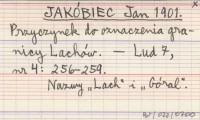 JAKÓBIEC Jan 1901.
Przyczynek do oznaczenia gra-
nicy Lachów. — Lud 7,
nr 4: 256-259.
Nazwy „Lach" i „Góral".